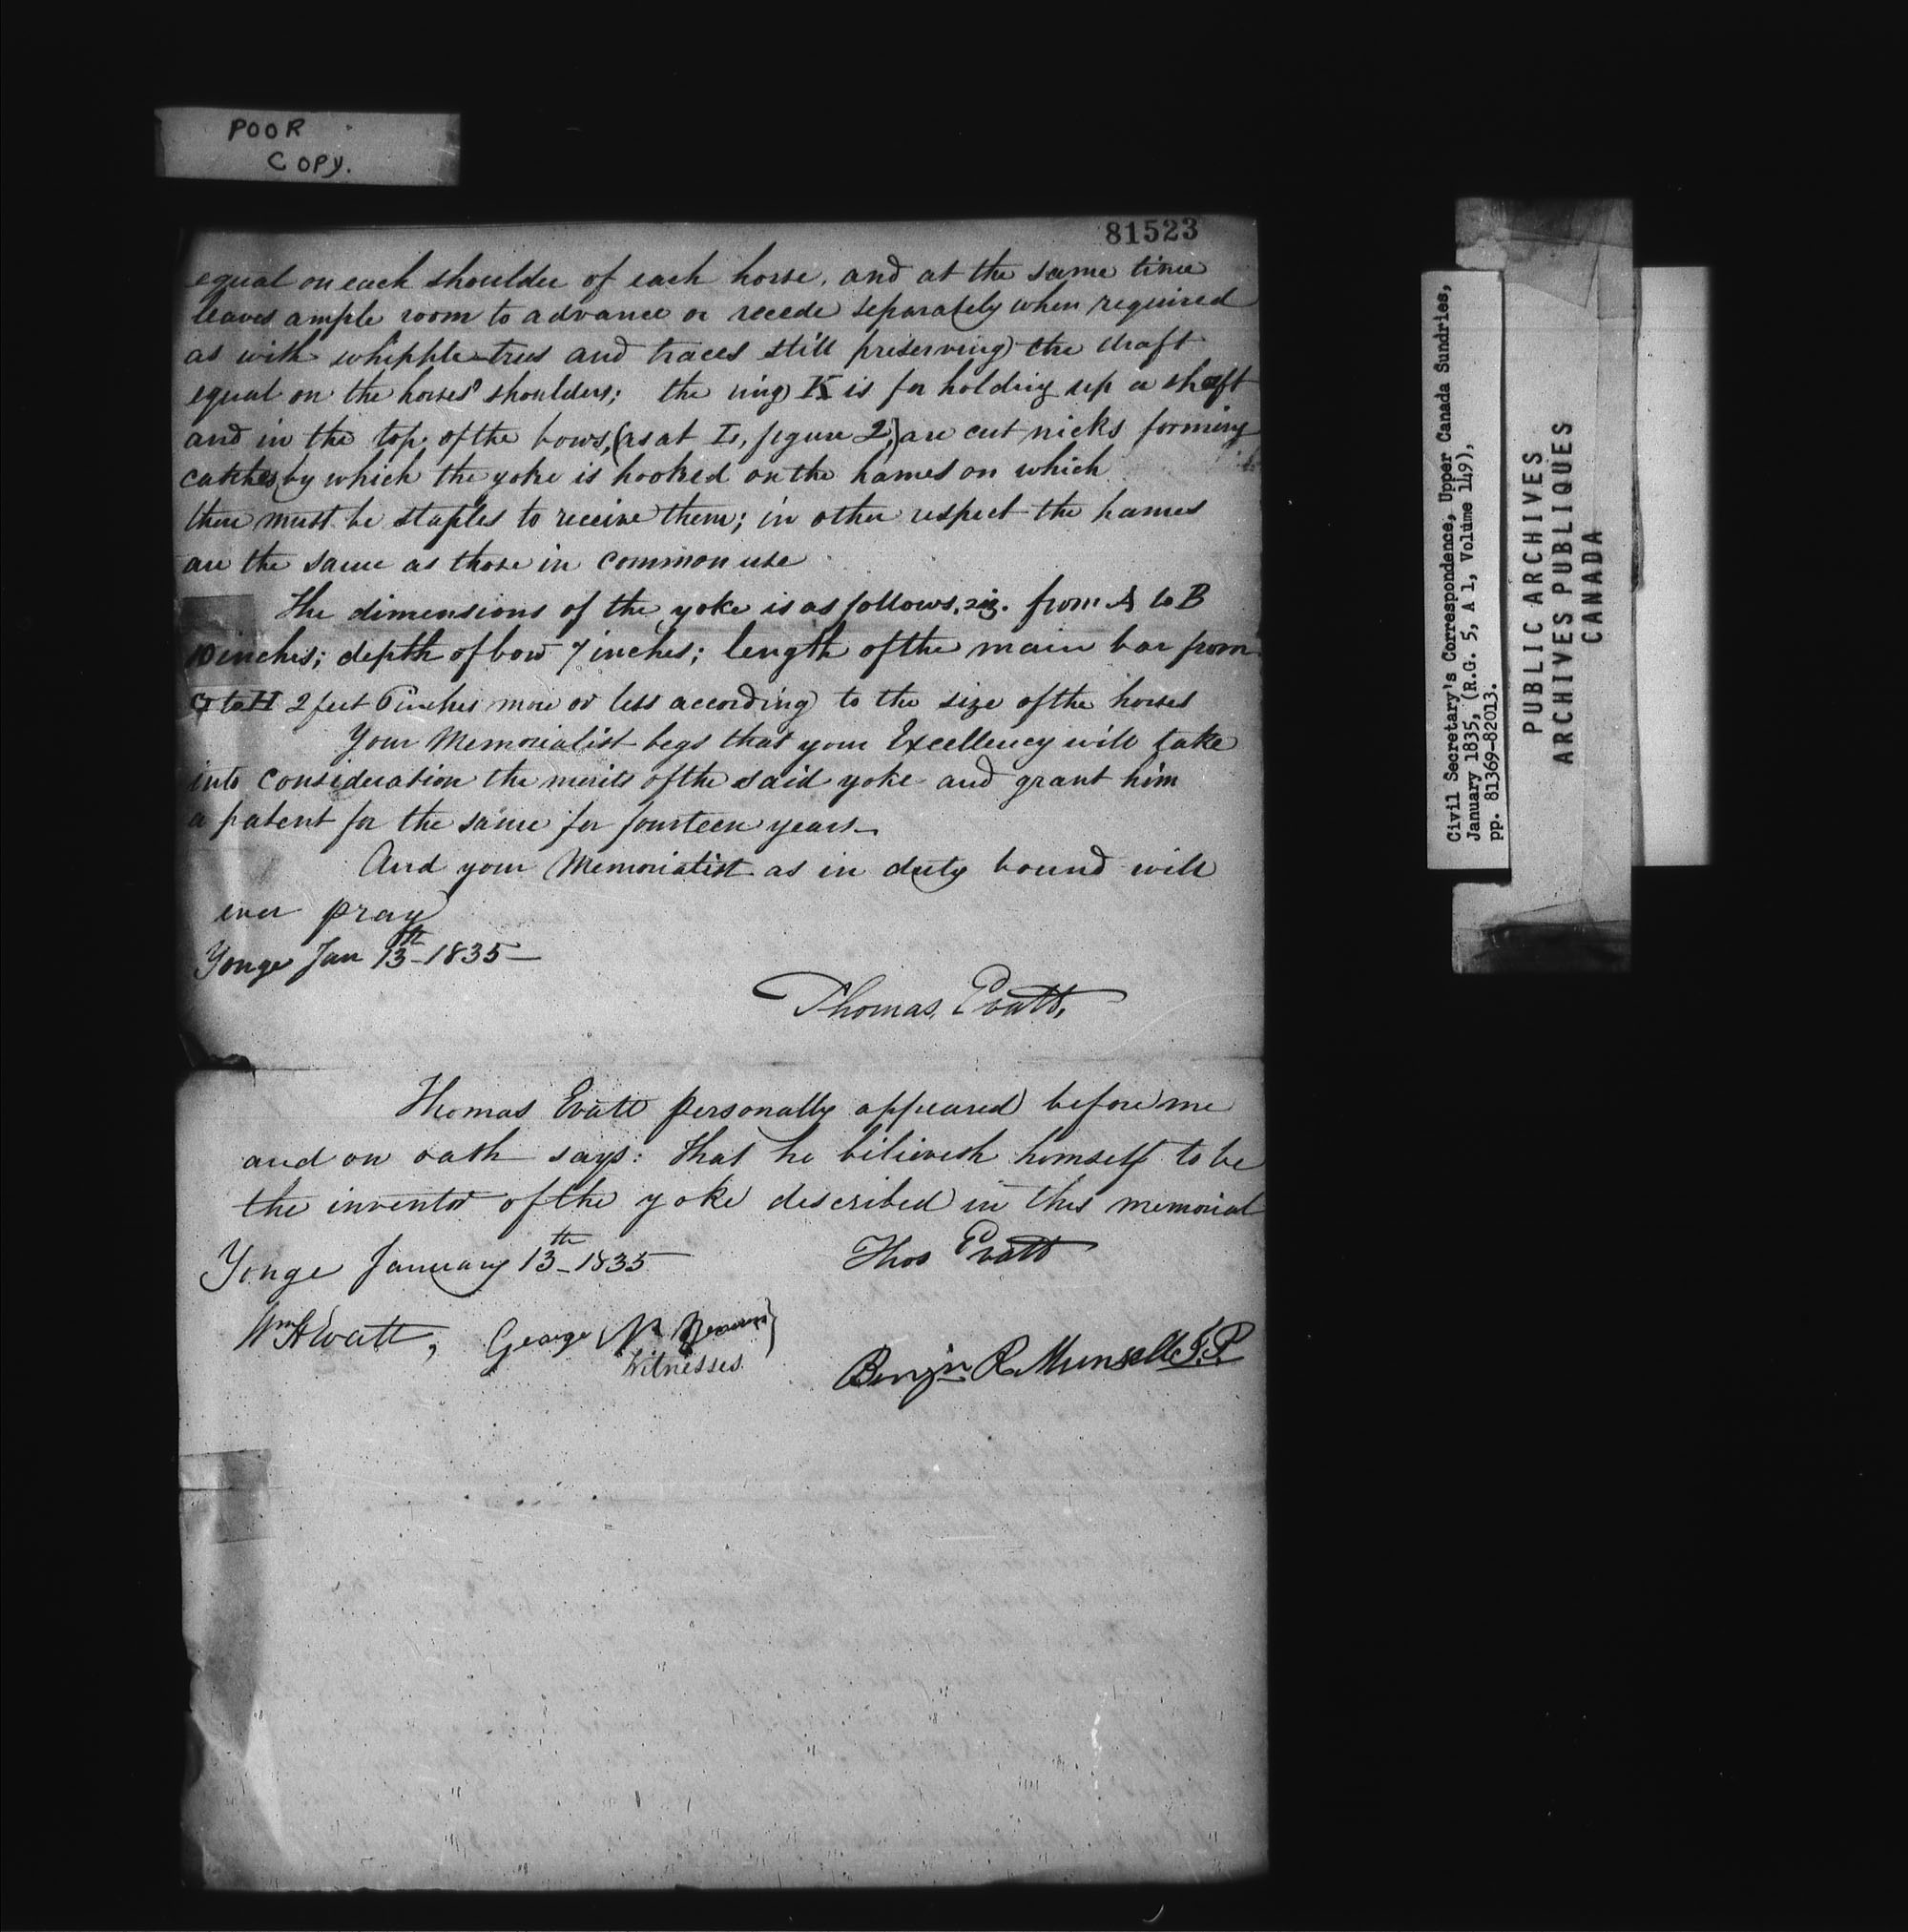 POOR
COPY.
81523
equal on each shoulder of each horse, and at the same time
leaves ample room to advance or recede separately when required
as with whipple-trees and traces still preserving the draft
equal on the horses' shoulders; the ring K is for holding up a shaft
and in the top of the bows, (as at I, figure 2,) are cut nicks forming
catches by which the yoke is hooked on the hames on which
there must be staples to receive them; in other respect the hames
are the same as those in common use
The dimensions of the yoke is as follows, viz. from A to B
10 inches; depth of bow 7 inches; length of the main bar from
G to H 2 feet 6 inches more or less according to the size of the horses
Your Memorialist begs that your Excellency will take
into consideration the merits of the said yoke and grant him
a patent for the same for fourteen years—
And your Memorialist as in duty bound will
ever pray
Yonge Jan 13th 1835—
Thomas Evatt,
Thomas Evatt personally appeared before me
and on oath says: that he believeth himself to be
the inventor of the yoke described in this memorial
Yonge January 13th 1835
Thos Evatt
Wm H Evatt, George
Witnesses
Benjn R. Munsell J.P.
Civil Secretary's Correspondence, Upper Canada Sundries,
January 1835, (R.G. 5, A 1, Volume 149),
pp. 81369-82013.
PUBLIC ARCHIVES
ARCHIVES PUBLIQUES
CANADA